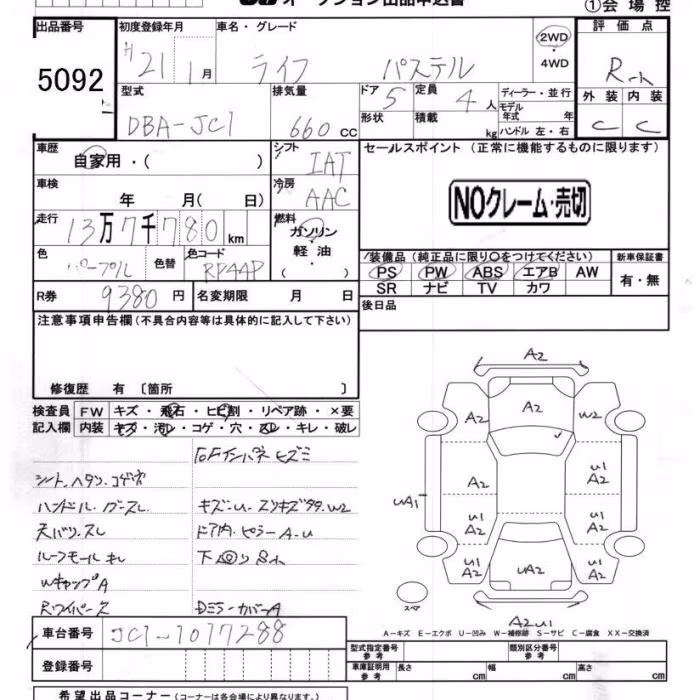 オークション出品申込書
①会場控
出品番号 初度登録年月 車名・グレード 評価点
5092 H 21 1月 ライフ パステル 2WD・4WD R-
型式 排気量 ドア 定員 ディーラー・並行 外装 内装
DBA-JC1 660cc 5 4人 モデル年式 年 C C
形状 積載 kg ハンドル 左・右
車歴 自家用・( ) シフト IAT セールスポイント(正常に機能するものに限ります)
車検 年 月( 日) 冷房 AAC NOクレーム・売切
走行 13万7千780km 燃料 ガソリン・軽油・( )
色 パープル 色替 色コード RP44P 装備品(純正品に限り○をつけてください) 新車保証書
PS PW ABS エアB AW 有・無
SR ナビ TV カワ
R券 9380円 名変期限 月 日 後日品
注意事項申告欄(不具合内容等は具体的に記入して下さい)
修復歴 有〔箇所 〕
検査員記入欄 FW キズ・飛石・ヒビ割・リペア跡・×要
内装 キズ・汚レ・コゲ・穴・スレ・キレ・破レ
シート.ヘタシ.コゲ穴
ハンドル.ブースレ キズ-U-スリキズタタ.W2
天バリ.スレ ドア内.ピラーA-U
ルーフモールキレ 下廻りSh
WキャップA
RワイパーX DミラーカバーA
A2
A2 W2
A2 U1 A2
UA1 U1 A2 U1 A2
U1 A2 UA2 U1 A2
スペア
A2U1
A-キズ E-エクボ U-凹み W-補修跡 S-サビ C-腐食 XX-交換済
車台番号 JC1-1017288
型式指定番号 参考 類別区分番号 参考
登録番号 車庫証明用 参考 長さ cm 幅 cm 高さ cm
希望出品コーナー(コーナーは各会場により異なります。)